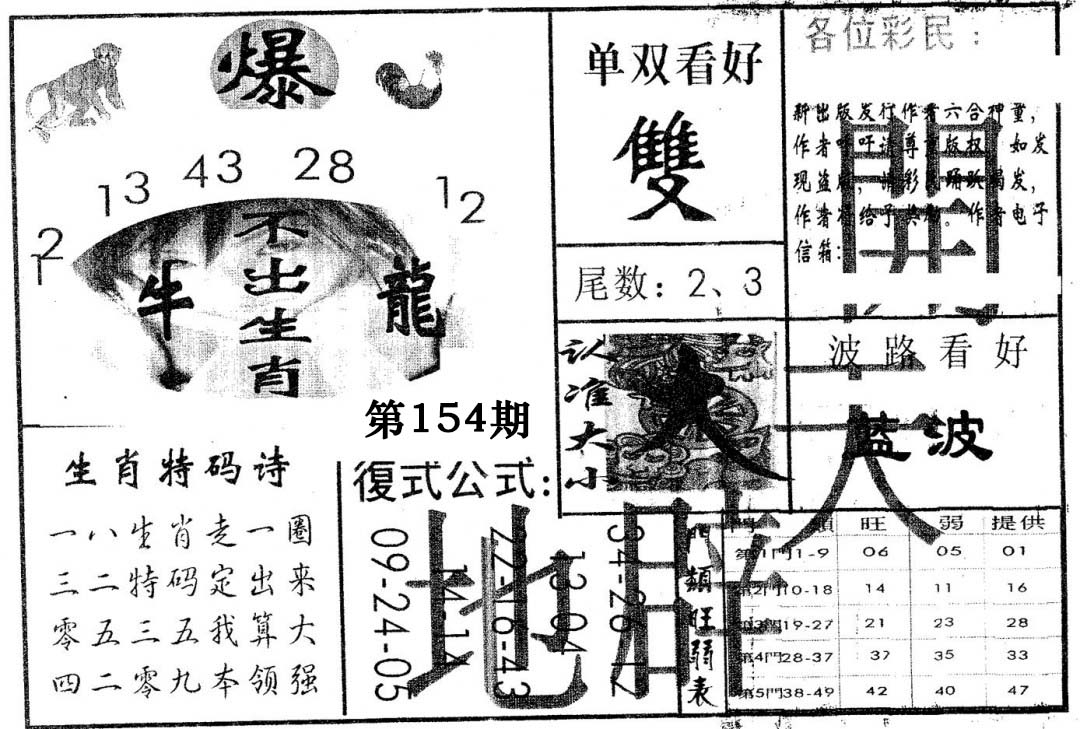 爆
13 43 28 12
12
不出生肖
牛 龍
第154期
单双看好
雙
尾数：2、3
各位彩民：
新出版发行作者六合神童，
作者吁吁请尊重版权 如发
现盗版， 彩民踊跃揭发，
作者将给予奖励。作者电子
信箱：
認准大小
大
波路看好
蓝波
生肖特码诗
一八生肖走一圈
三二特码定出来
零五三五我算大
四二零九本领强
復式公式：
09-24-05
14-14
22-16-43
13-04
34-26-12
開天地
門類旺弱表
門類 旺 弱 提供
第1門1-9 06 05 01
第2門10-18 14 11 16
第3門19-27 21 23 28
第4門28-37 37 35 33
第5門38-49 42 40 47